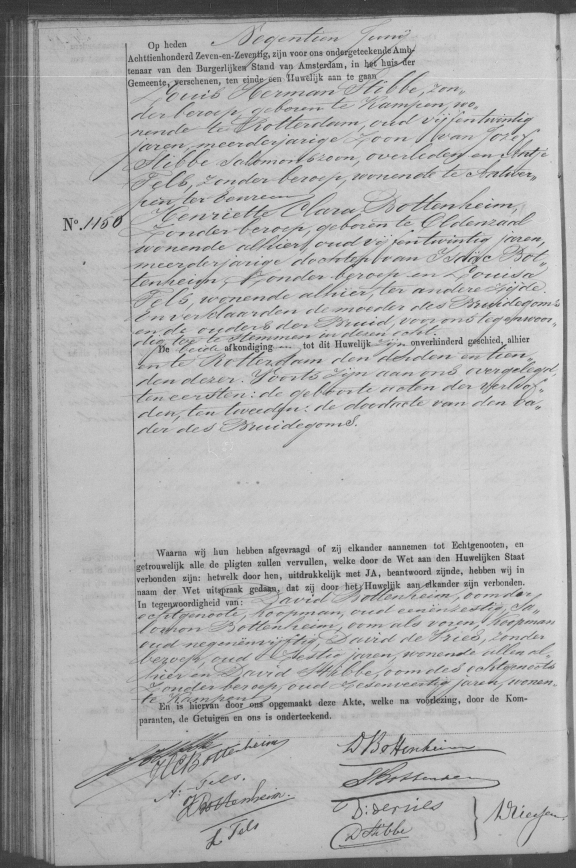 Op heden Negentien Juni
Achttienhonderd Zeven-en-Zeventig, zijn voor ons ondergeteekende Amb-
tenaar van den Burgerlijken Stand van Amsterdam, in het huis der
Gemeente, verschenen, ten einde een Huwelijk aan te gaan
Louis Herman Stibbe, zon„
der beroep, geboren te Kampen, wo„
nende te Rotterdam, oud vijfentwintig
jaren, meerderjarige zoon van Jozef
Stibbe Salomonszoon, overleden en Antje
Fels, zonder beroep, wonende te Antwer„
pen, ter eenre
No. 1150
Henriette Clara Bottenheim,
zonder beroep, geboren te Oldenzaal
wonende alhier, oud vijfentwintig jaren,
meerderjarige dochter van Isaäc Bot„
tenheim, zonder beroep en Louisa
Fels, wonende alhier, ter andere zijde
En verklaarden de moeder des Bruidegoms
en de ouders der Bruid, voor ons tegenwoor„
dig toe te stemmen in dezen echt.
De beide afkondigingen tot dit Huwelijk zijn onverhinderd geschied, alhier
en te Rotterdam den derden en tien„
den dezer. Voorts zijn aan ons overgelegd,
ten eersten: de geboorte acten der Verloof„
den, ten tweeden: de doodacte van den va„
der des Bruidegoms.
Waarna wij hun hebben afgevraagd of zij elkander aannemen tot Echtgenooten, en
getrouwelijk alle de pligten zullen vervullen, welke door de Wet aan den Huwelijken Staat
verbonden zijn: hetwelk door hen, uitdrukkelijk met JA, beantwoord zijnde, hebben wij in
naam der Wet uitspraak gedaan, dat zij door het Huwelijk aan elkander zijn verbonden.
In tegenwoordigheid van: David Bottenheim, oom der
echtgenoote, koopman, oud eenenzestig, Sa„
lomon Bottenheim, oom als voren, koopman
oud negenenvijftig, David de Vries, zonder
beroep, oud zestig jaren, wonende allen al„
hier en David Stibbe, oom des echtgenoots
zonder beroep, oud zesenveertig jaren, wonen„
de te Kampen
En is hiervan door ons opgemaakt deze Akte, welke na voorlezing, door de Kom-
paranten, de Getuigen en ons is onderteekend.
HC Bottenheim
D Bottenheim
A. Fels.
S Bottenheim
Bottenheim.
D: de Vries
L Fels
D Stibbe